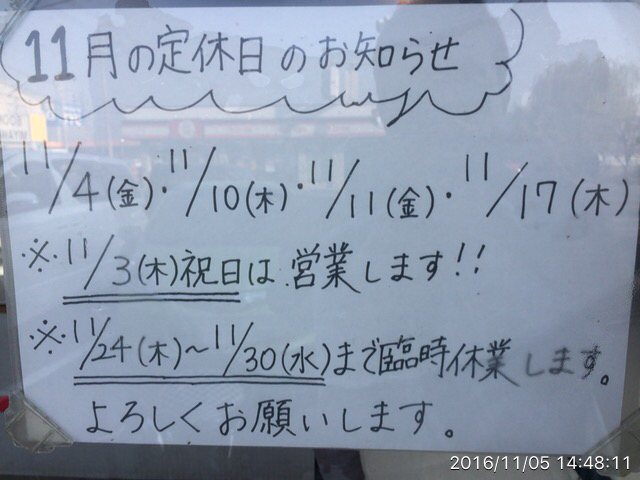 11月の定休日のお知らせ
11/4(金)・11/10(木)・11/11(金)・11/17(木)
※11/3(木)祝日は営業します!!
※11/24(木)~11/30(水)まで臨時休業します。
よろしくお願いします。
2016/11/05 14:48:11